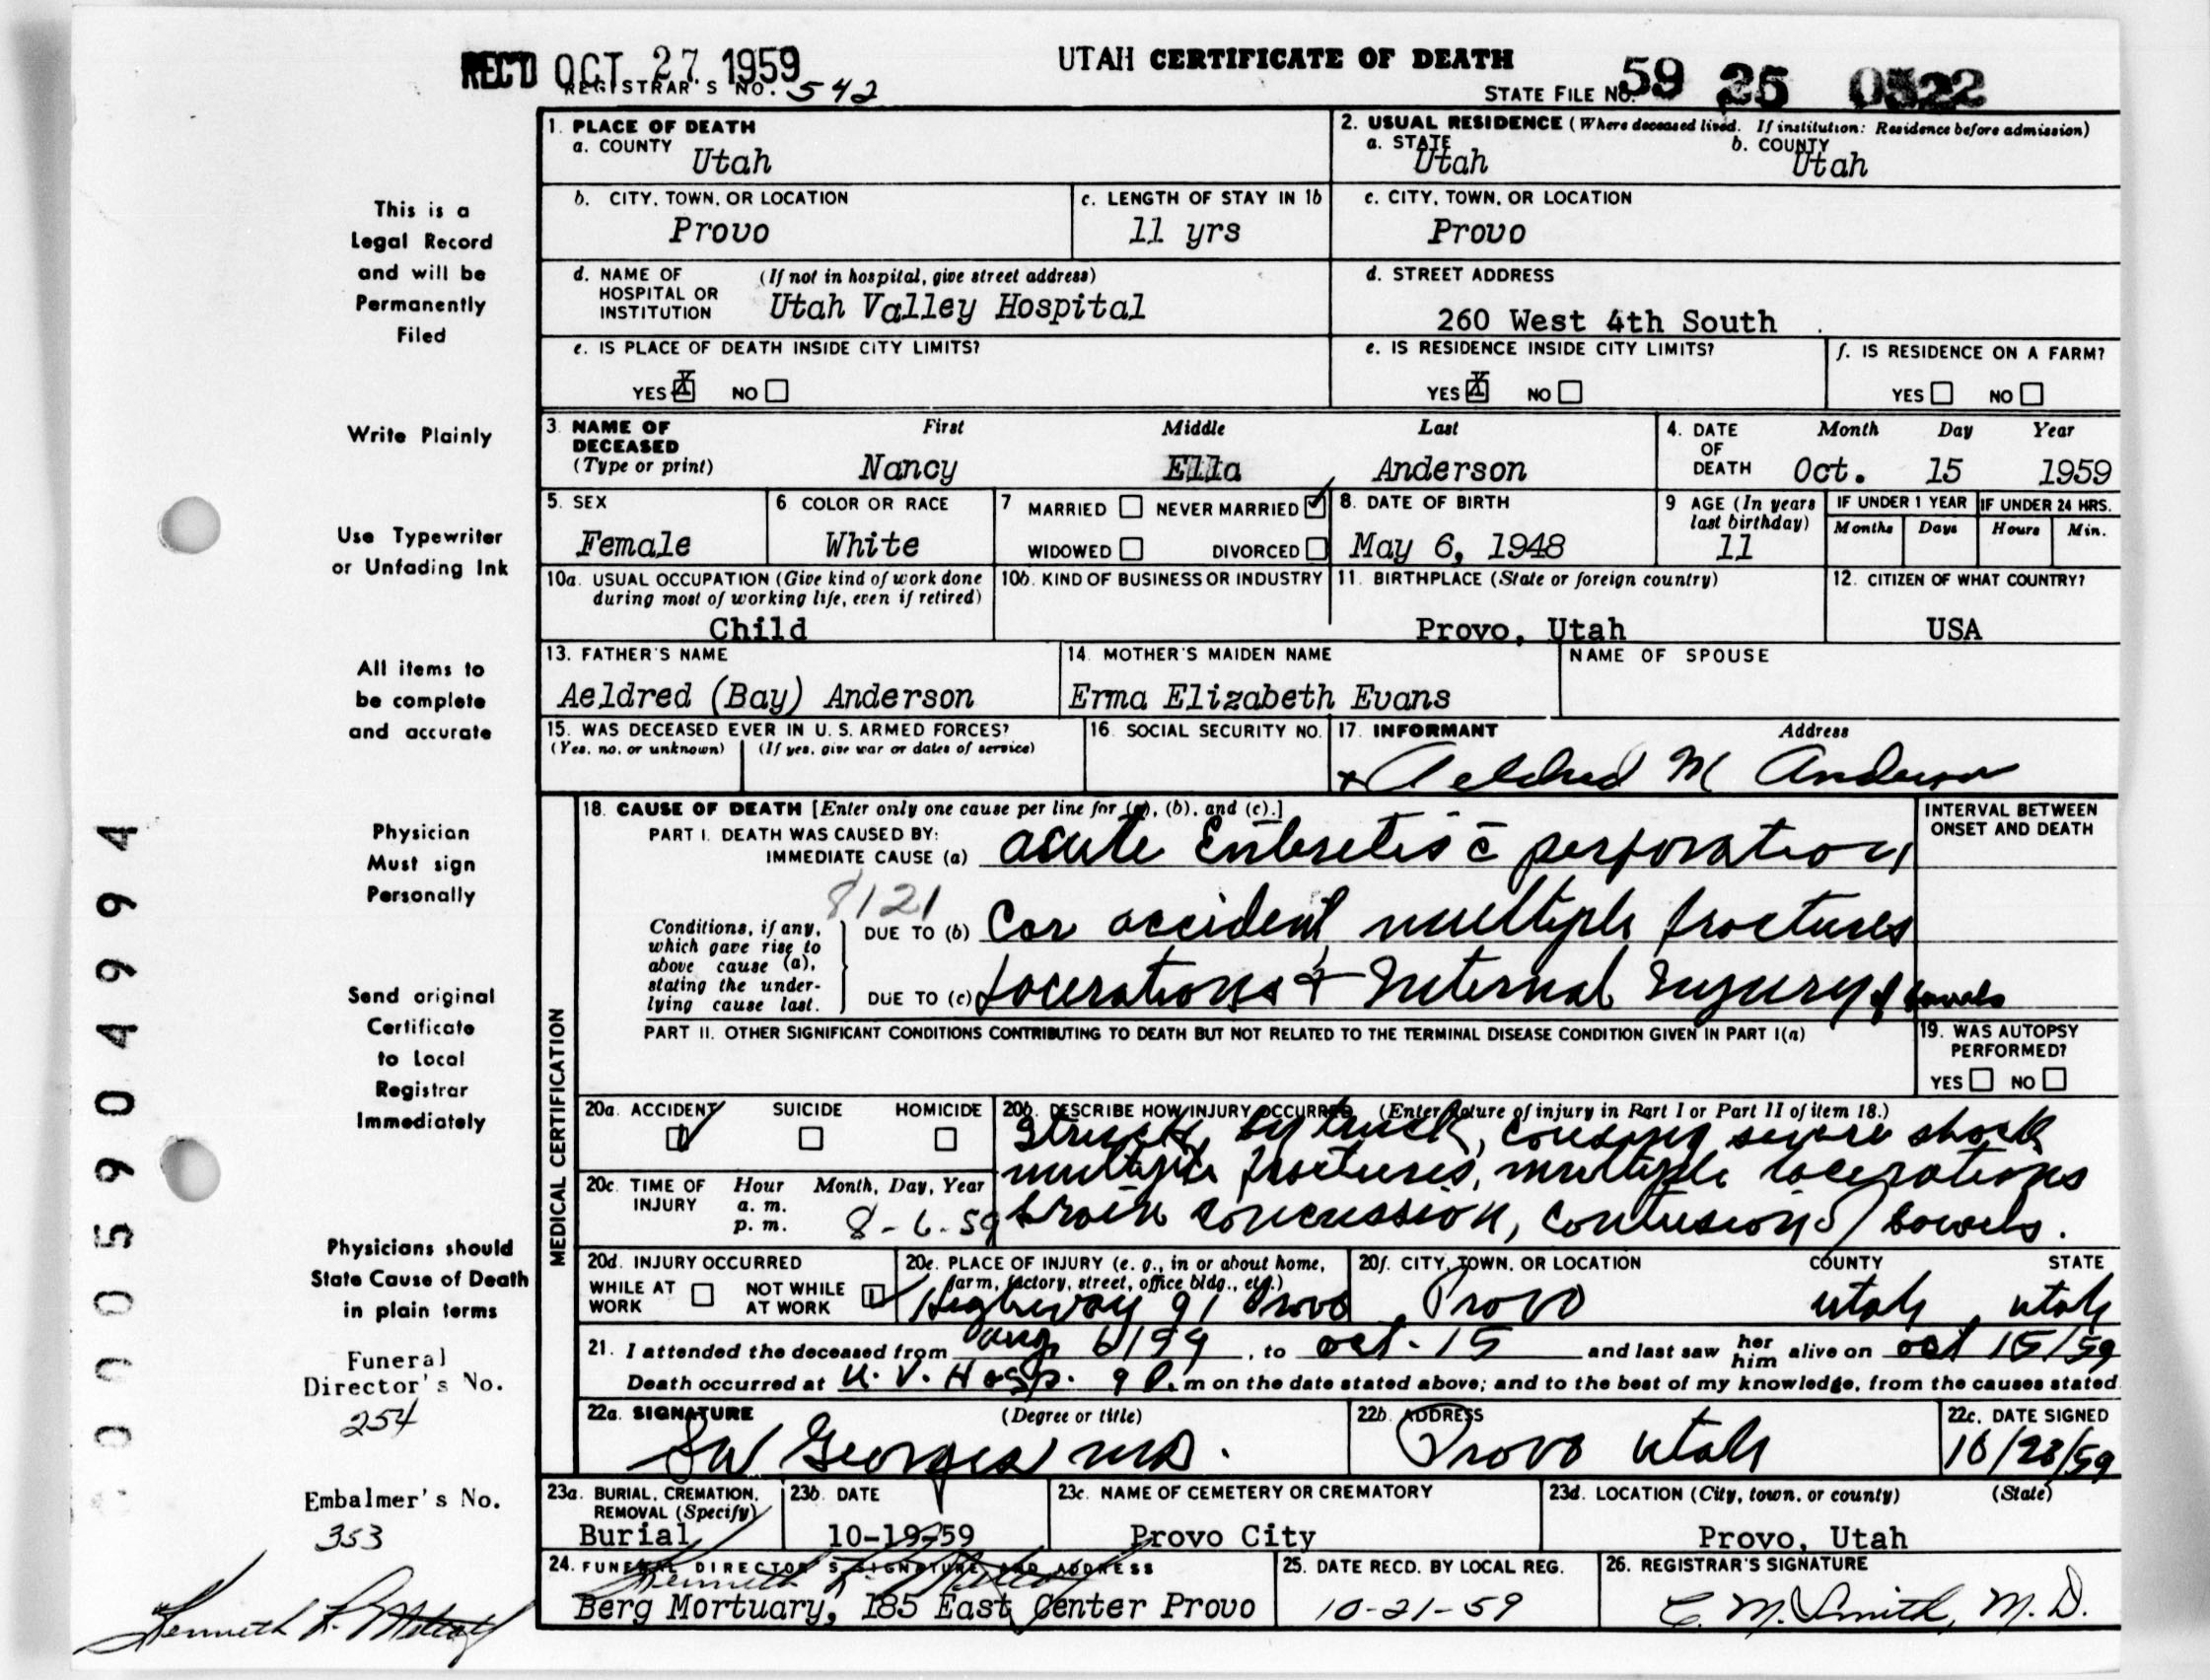 REC'D OCT 27 1959
UTAH CERTIFICATE OF DEATH
REGISTRAR'S NO. 542
STATE FILE NO. 59 25 0522
1. PLACE OF DEATH
a. COUNTY Utah
2. USUAL RESIDENCE (Where deceased lived. If institution: Residence before admission)
a. STATE Utah b. COUNTY Utah
b. CITY, TOWN, OR LOCATION Provo
c. LENGTH OF STAY IN 1b 11 yrs
c. CITY, TOWN, OR LOCATION Provo
d. NAME OF HOSPITAL OR INSTITUTION (If not in hospital, give street address) Utah Valley Hospital
d. STREET ADDRESS
260 West 4th South
e. IS PLACE OF DEATH INSIDE CITY LIMITS?
YES X NO
e. IS RESIDENCE INSIDE CITY LIMITS?
YES X NO
f. IS RESIDENCE ON A FARM?
YES NO
3. NAME OF DECEASED (Type or print) First Middle Last
Nancy Ella Anderson
4. DATE OF DEATH Month Day Year
Oct. 15 1959
5. SEX Female
6 COLOR OR RACE White
7 MARRIED NEVER MARRIED ✓
WIDOWED DIVORCED
8. DATE OF BIRTH May 6, 1948
9 AGE (In years last birthday) 11
IF UNDER 1 YEAR Months Days
IF UNDER 24 HRS. Hours Min.
10a. USUAL OCCUPATION (Give kind of work done during most of working life, even if retired)
Child
10b. KIND OF BUSINESS OR INDUSTRY
11. BIRTHPLACE (State or foreign country)
Provo, Utah
12. CITIZEN OF WHAT COUNTRY?
USA
13. FATHER'S NAME
Aeldred (Bay) Anderson
14. MOTHER'S MAIDEN NAME
Erma Elizabeth Evans
NAME OF SPOUSE
15. WAS DECEASED EVER IN U. S. ARMED FORCES?
(Yes, no, or unknown) (If yes, give war or dates of service)
16. SOCIAL SECURITY NO.
17. INFORMANT Address
x Aeldred M Anderson
MEDICAL CERTIFICATION
18. CAUSE OF DEATH [Enter only one cause per line for (a), (b), and (c).]
PART I. DEATH WAS CAUSED BY:
IMMEDIATE CAUSE (a) acute Enteretis c̄ perforation
INTERVAL BETWEEN ONSET AND DEATH
8121
Conditions, if any, which gave rise to above cause (a), stating the underlying cause last.
DUE TO (b) Car accident, multiple fractures
DUE TO (c) Lacerations & Internal Injury of bowels
PART II. OTHER SIGNIFICANT CONDITIONS CONTRIBUTING TO DEATH BUT NOT RELATED TO THE TERMINAL DISEASE CONDITION GIVEN IN PART I(a)
19. WAS AUTOPSY PERFORMED?
YES NO
20a. ACCIDENT ✓ SUICIDE HOMICIDE
20b. DESCRIBE HOW INJURY OCCURRED (Enter nature of injury in Part I or Part II of item 18.)
Struck by truck, causing severe shock
multiple fractures, multiple lacerations
brain concussion, contusion of bowels.
20c. TIME OF INJURY Hour a. m. p. m. Month, Day, Year
8-6-59
20d. INJURY OCCURRED
WHILE AT WORK NOT WHILE AT WORK ✓
20e. PLACE OF INJURY (e. g., in or about home, farm, factory, street, office bldg., etc.)
Highway 91 Provo
20f. CITY, TOWN, OR LOCATION COUNTY STATE
Provo Utah Utah
21. I attended the deceased from Aug 6/59, to Oct - 15 and last saw her him alive on Oct 15/59
Death occurred at U. V. Hosp. 9 P. m on the date stated above; and to the best of my knowledge, from the causes stated
22a. SIGNATURE (Degree or title)
SW Georges MD.
22b. ADDRESS
Provo Utah
22c. DATE SIGNED
10/20/59
23a. BURIAL, CREMATION, REMOVAL (Specify)
Burial
23b. DATE
10-19-59
23c. NAME OF CEMETERY OR CREMATORY
Provo City
23d. LOCATION (City, town, or county) (State)
Provo, Utah
24. FUNERAL DIRECTOR'S SIGNATURE AND ADDRESS
Berg Mortuary, 185 East Center Provo
25. DATE RECD. BY LOCAL REG.
10-21-59
26. REGISTRAR'S SIGNATURE
C. M. Smith, M. D.
This is a
Legal Record
and will be
Permanently
Filed
Write Plainly
Use Typewriter
or Unfading Ink
All items to
be complete
and accurate
Physician
Must sign
Personally
Send original
Certificate
to Local
Registrar
Immediately
Physicians should
State Cause of Death
in plain terms
Funeral
Director's No.
254
Embalmer's No.
353
Kenneth
005904994